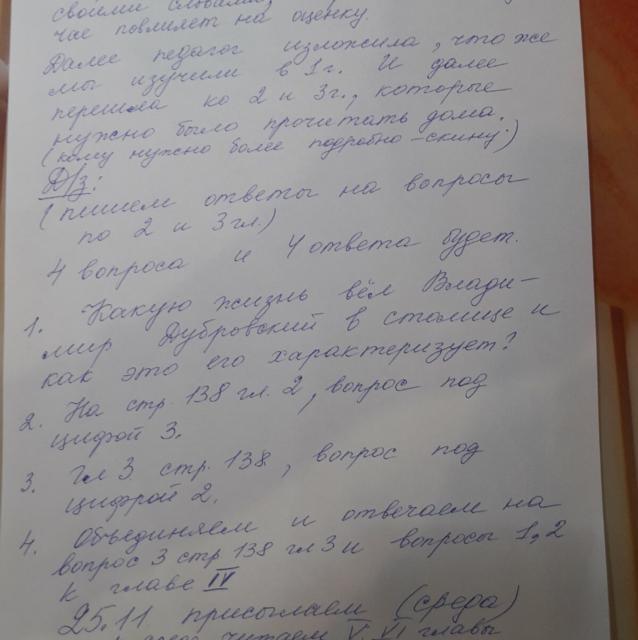 своими словами,
чае повлияет на оценку.
Далее педагог изложила, что же
мы изучили в 1г. И далее
перешла ко 2 и 3г., которые
нужно было прочитать дома.
(кому нужно более подробно - скину.)
Д/з:
(пишем ответы на вопросы
по 2 и 3гл.)
4 вопроса и 4 ответа будет.
1. Какую жизнь вёл Влади-
мир Дубровский в столице и
как это его характеризует?
2. На стр. 138 гл. 2, вопрос под
цифрой 3.
3. Гл 3 стр. 138, вопрос под
цифрой 2.
4. Объединяем и отвечаем на
вопрос 3 стр 138 гл 3 и вопросы 1,2
к главе IV
25.11 присылаем (среда)
читаем V, VI главы